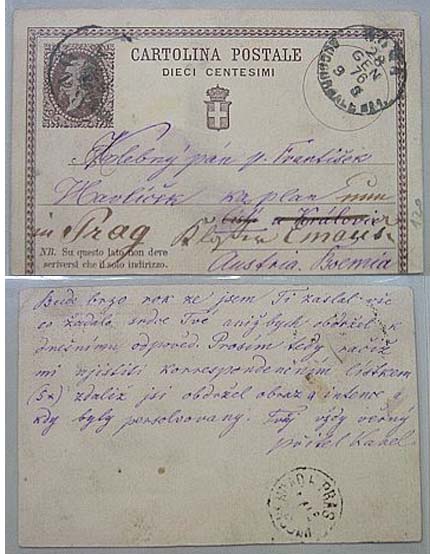 CARTOLINA POSTALE
DIECI CENTESIMI
28
GEN
76
Velebný pán p. František
Havlíček kaplan nun
in Prag Kloster Emaus
NB. Su questo lato non deve
scriversi che il solo indirizzo.
Austria. Boemia
120
Bude brzo rok že jsem Ti zaslal vše
co žádalo srdce Tvé aniž bych obdržel k
dnešnímu odpověď. Prosím tedy račiž
mi zjistiti korrespondenčním lístkem
zdaliž jsi obdržel obraz a intence a
kdy byly persolvovany. Tvůj vždy věrný
přítel Karel